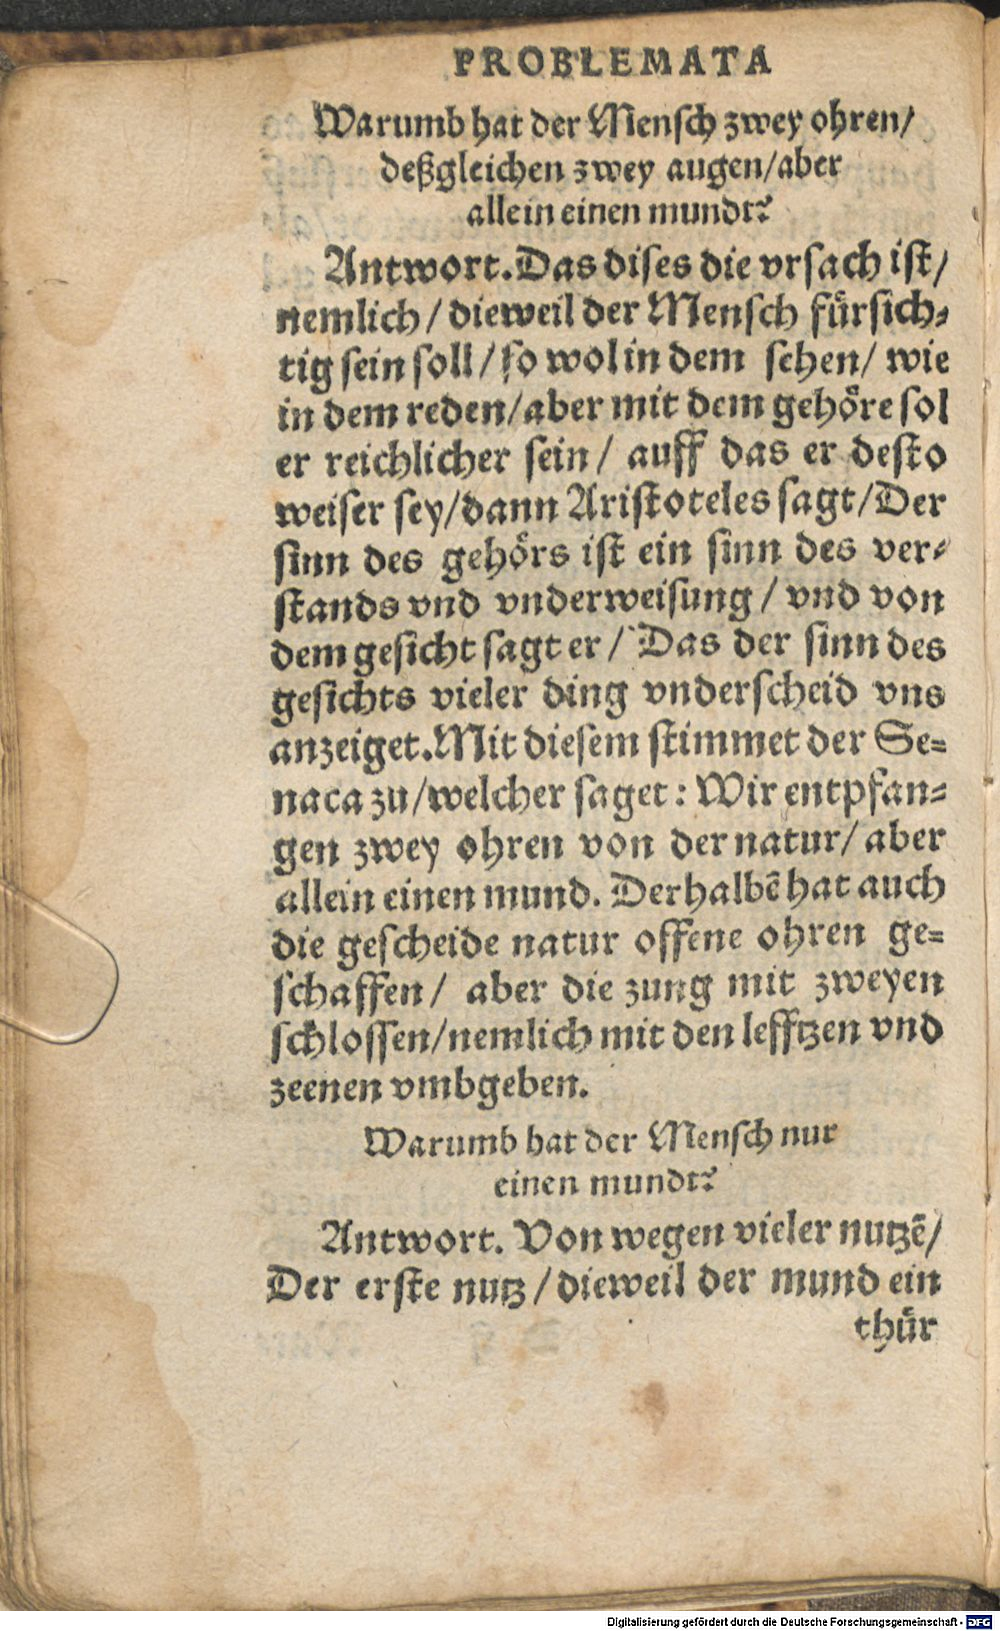 PROBLEMATA
Warumb hat der Mensch zwey ohren/
deßgleichen zwey augen/aber
allein einen mundt?
Antwort. Das dises die vrsach ist/
nemlich/ dieweil der Mensch fürsich-
tig sein soll/ so wol in dem sehen/ wie
in dem reden/ aber mit dem gehöre sol
er reichlicher sein/ auff das er desto
weiser sey/dann Aristoteles sagt/Der
sinn des gehörs ist ein sinn des ver-
stands vnd vnderweisung/ vnd von
dem gesicht sagt er/ Das der sinn des
gesichts vieler ding vnderscheid vns
anzeiget. Mit diesem stimmet der Se-
naca zu/welcher saget: Wir entpfan-
gen zwey ohren von der natur/ aber
allein einen mund. Derhalbẽ hat auch
die gescheide natur offene ohren ge-
schaffen/ aber die zung mit zweyen
schlossen/nemlich mit den lefftzen vnd
zeenen vmbgeben.
Warumb hat der Mensch nur
einen mundt?
Antwort. Von wegen vieler nutzẽ/
Der erste nutz/dieweil der mund ein
thür
Digitalisierung gefördert durch die Deutsche Forschungsgemeinschaft - DFG